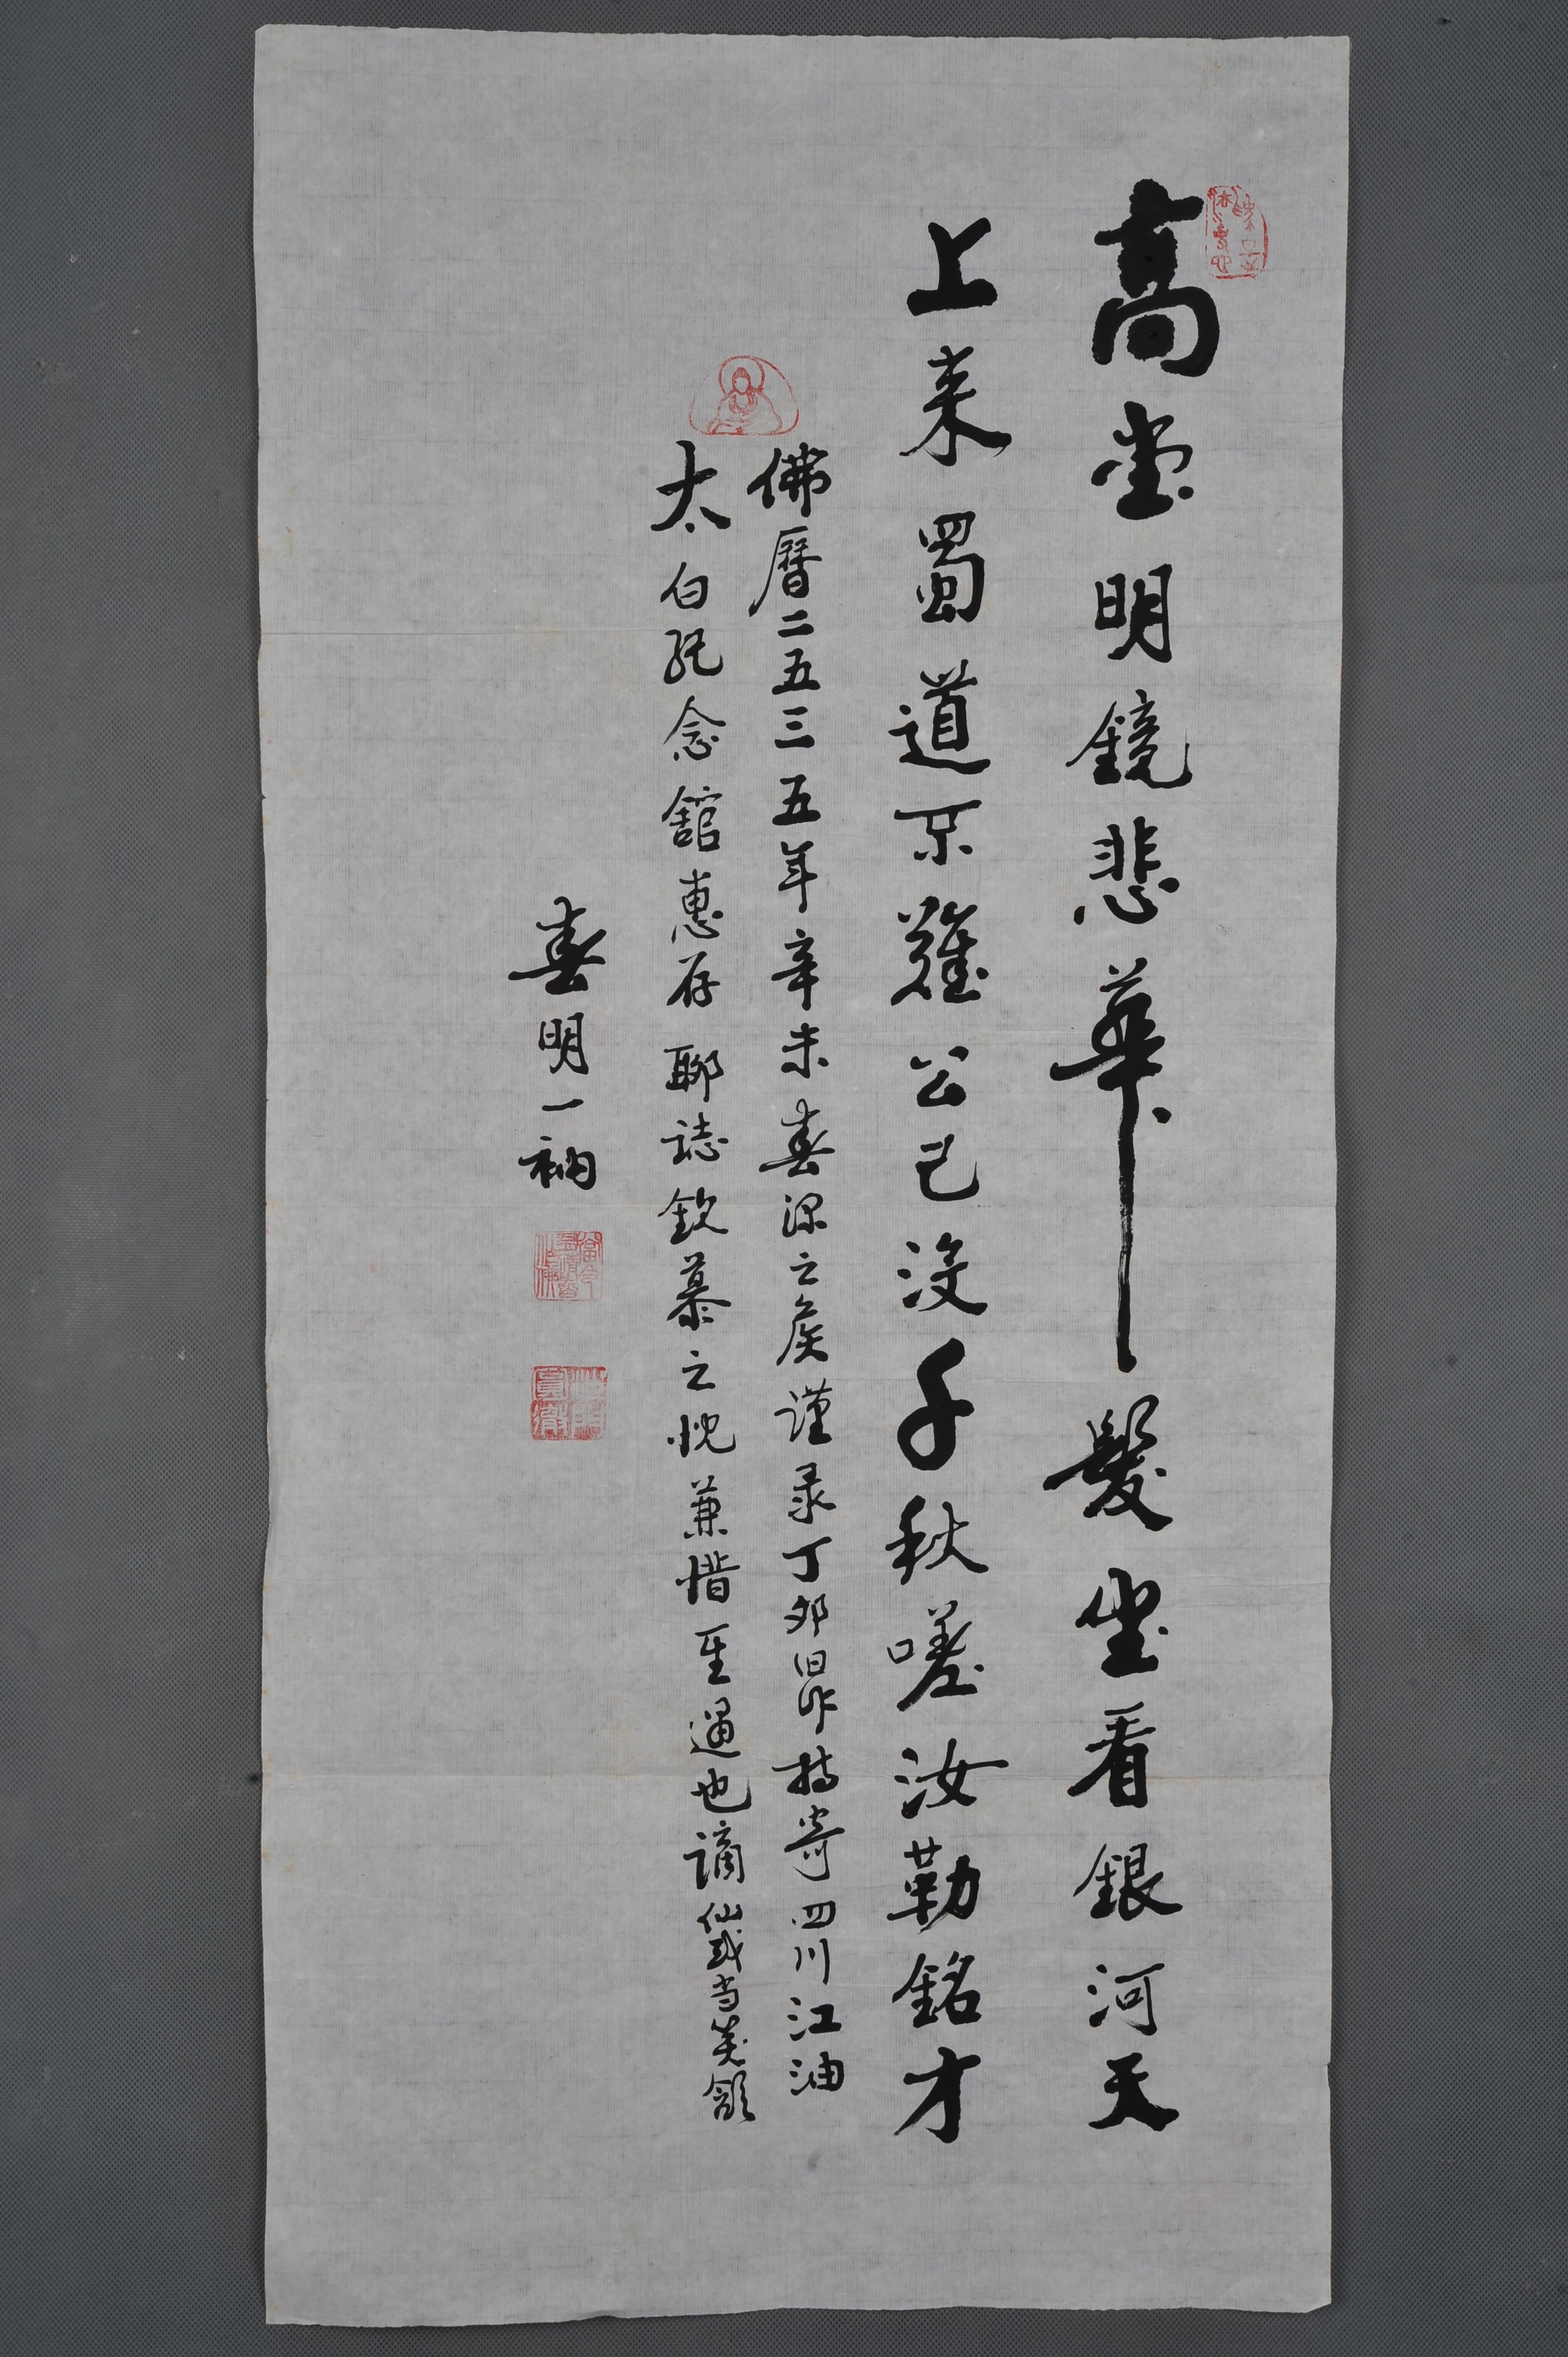 高堂明鏡悲華髮坐看銀河天
上来蜀道不難公已沒千秋嗟汝勒銘才
佛曆二五三五年辛未春深之矦謹录丁夘旧作持寄四川江油
太白紀念舘惠存聊誌欽慕之忱兼惜至過也谪仙或当笑領
春明一衲